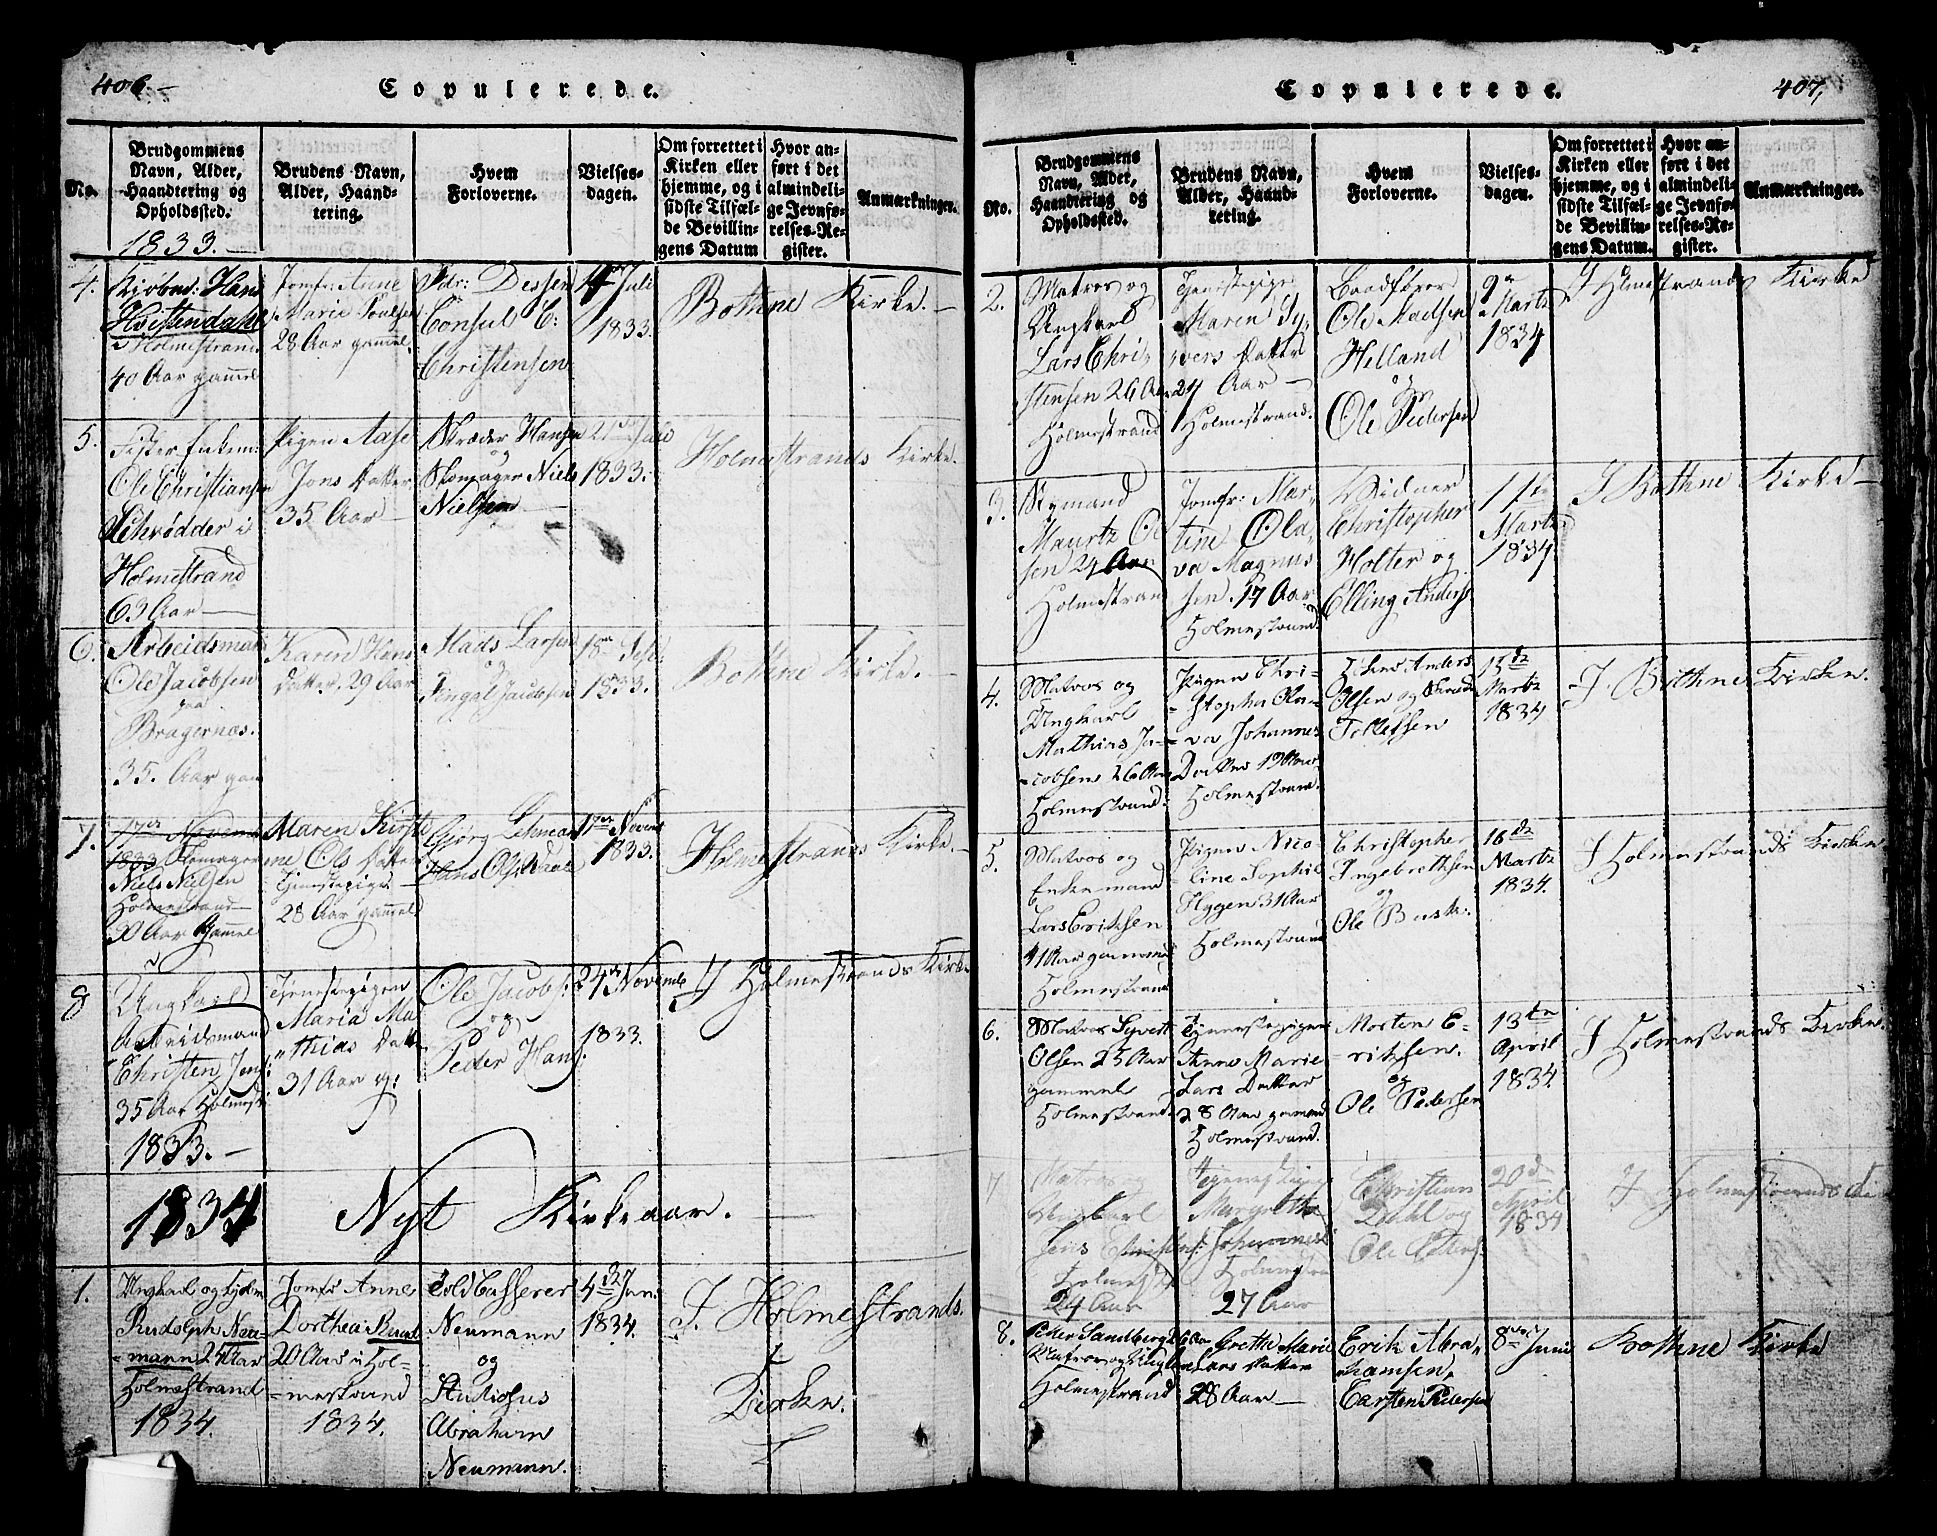 406.
Copulerede.
No.
Brudgommens
Navn, Alder,
Haandtering og
Opholdssted.
Brudens Navn,
Alder, Haand-
tering.
Hvem
Forloverne.
Vielses-
dagen.
Om forrettet i
Kirken eller
hjemme, og i
sidste Tilfæl-
de Bevillin-
gens Datum
Hvor an-
ført i det
almindeli-
ge Jevnfø-
relses-Re-
gister.
Anmærkninger.
1833.
4.
Hans
Holmestrand
40 Aar gamel
Jomfr: Anne
Marie Poulsen
28 Aar gamel.
Dessen
Consul C:
Christensen
Juli
1833.
Bothne Kirke.
5.
Ole Christiansen
Schrødder i
Holmestrand
63 Aar
Pigen Aase
Jons Datter
35 Aar
Skræder Hansen
og
Skomager Niels
Nielsen
21de Juli
1833.
Holmestrands Kirke.
6.
Arbeidsman
Ole Jacobsen
paa
Bragernæs.
35. Aar gam
Karen Hans
Datter. 29 Aar
Mads Larsen
og
Jacobsen
1833.
Bothne Kirke.
7.
17de Novemb
1833 Skomager
Niels Nielsen
Holmestrand
30 Aar Gamel
Maren Kirsti
ne Ols Datter
Tjenestepige
28 Aar gamel
Lehman
Hans Ols:
17de Novem
1833.
Holmestrands Kirke.
8
Ungkarl
Arbeidsmand
Christen Jens:
35 Aar Holmest:
1833.
Tjenestepigen
Maria Ma
thias Datt
31 Aar g:
Ole Jacobs:
og
Peder Hans:
24de Novemb
1833.
I Holmestrands Kirke
1834 Nyt Kirkeaar.
1.
Ungkarl og
Rudolph Neu-
mann 24 Aar
Holmestrand
1834.
Jomfr Anne
Dorthea
20 Aar i Hol-
mestrand
1834.
Told Casserer
Neumann
og
Studiosus
Abraham
Neumann.
4de Jan:
1834.
I. Holmestrands.
Kirke.
407,
Copulerede.
No.
Brudgommens
Navn, Alder,
Haandtering og
Opholdssted.
Brudens Navn,
Alder, Haand-
tering.
Hvem
Forloverne.
Vielses-
dagen.
Om forrettet i
Kirken eller
hjemme, og i
sidste Tilfæl-
de Bevillin-
gens Datum.
Hvor an-
ført i det
almindeli-
ge Jevnfø-
relses-Re-
gister.
Anmærkninger.
2.
Matros og
Ungkarl
Lars Chri-
stensen 26 Aar
Holmestrand
Tjenestepige
Maren Sy-
vers Datter
24 Aar
Holmestrand.
Baadfører
Ole Madsen
Helland
og
Ole Pedersen
9de
Martz
1834
I Holmestrands Kirke
3.
Styrmand
Mauritz Ol
sen 24 Aar
Holmestrand
Jomfr: Mar-
tine Ola-
va Magnus
sen. 17 Aar
Holmestrand
Christopher
Holter og
Elling Anders
11te
Martz
1834.
I Bothne Kirke
4.
Matros og
Ungkarl
Mathias Ja-
cobsen 26 Aar
Holmestrand.
Pigen Chri-
stopha Ola-
va Johannes
Datter 19 Aar
Holmestrand.
Anders
Olsen og
Tollefsen
13de
Martz
1834
I. Bothne Kirke.
5.
Matros og
Enkemand
Lars Erichsen
41 Aar gammel
Holmestrand
Pigen Nico-
line Sophie
Hyggen 31 Aar
Holmestrand
Christopher
Ingebrethsen
og
Ole Bush:
16de
Martz
1834.
I Holmestrands Kirke
6.
Matros Syvert
Olsen 25 Aar
gammel
Holmestrand.
Tjenestepigen
Anne Marie
Lars Datter
28 Aar gammel
Holmestrand.
Morten E-
richsen.
og
Ole Pedersen
13de
April
1834
I Holmestrands Kirke.
7
Matros og
Ungkarl
Jens Christens:
Holmestr
24 Aar
Tjenestepige
Margrethe
Johannesd
Holmestra
27 Aar
Christian
Dahl og
Ole
20de
April
1834
I Holmestrands
8.
Peter Sandberg
Matros og
Holmestrand
Grethe Marie
Lars Datter
28 Aar
Erik Abra-
hamsen,
Carsten Pedersen
8de Juni
Bothne Kirke